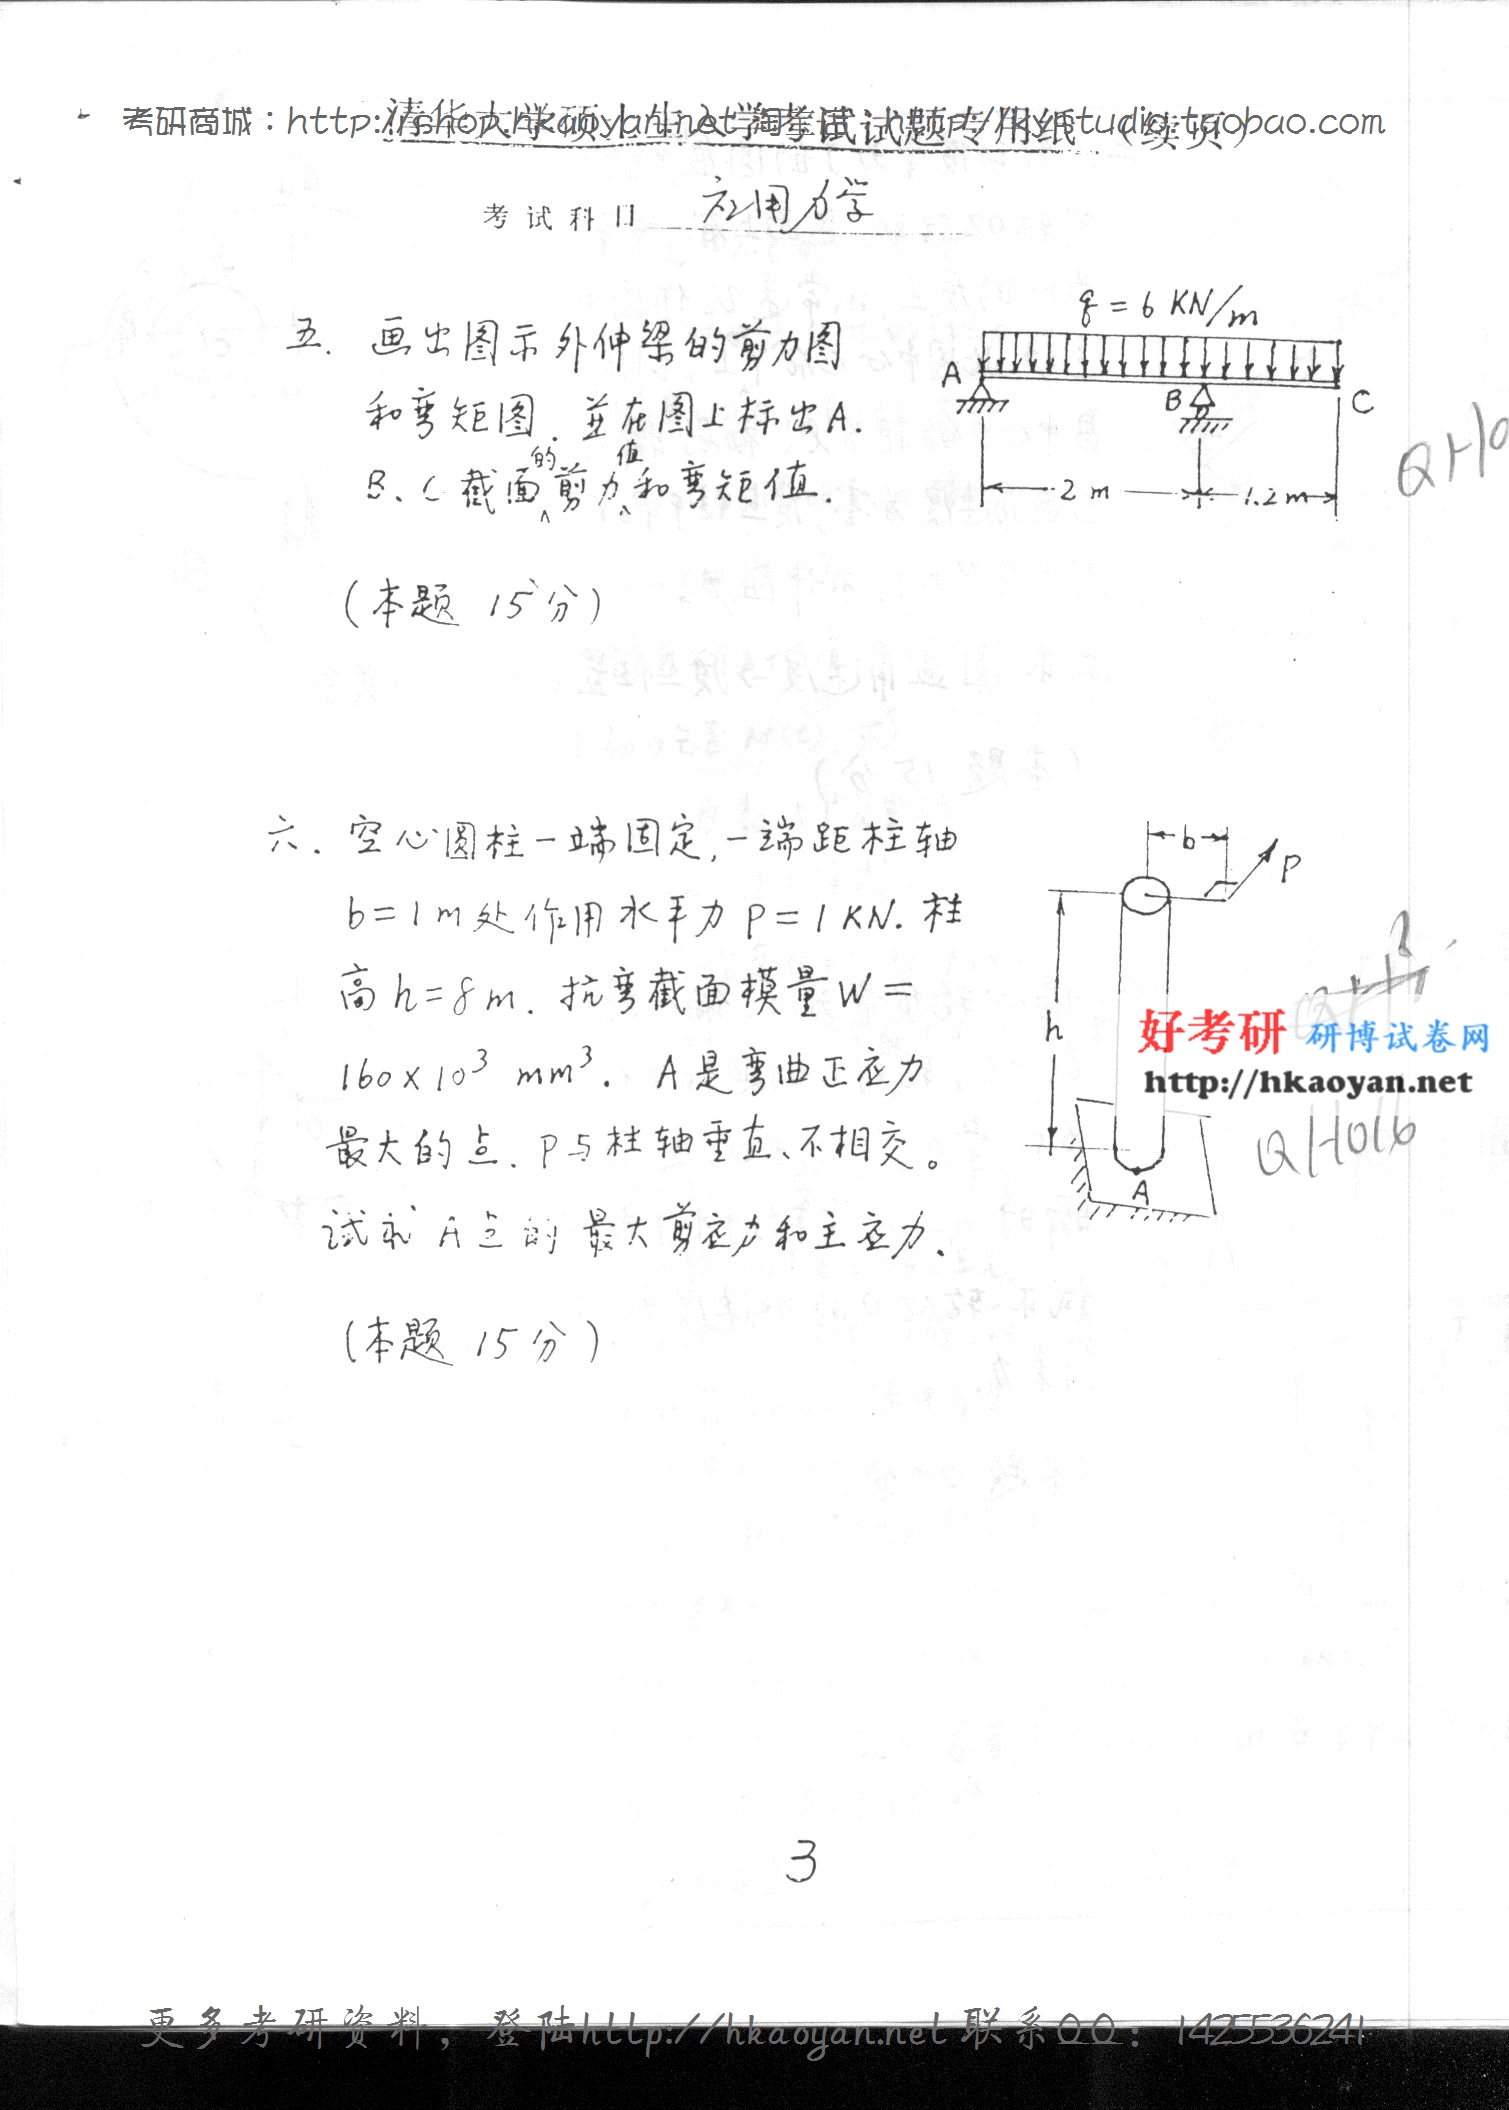 考研商城：http://shop.hkaoyan.net 淘宝店：http://kystudio.taobao.com
清华大学硕士生入学考试试题专用纸 （续页）
考试科目 应用力学
五. 画出图示外伸梁的剪力图
和弯矩图. 並在图上标出A.
B、C截面的剪力值和弯矩值.
(本题 15分)
q = 6 KN/m
A
B
C
2 m
1.2 m
QH0
六. 空心圆柱一端固定,一端距柱轴
b=1m处作用水平力 P=1KN. 柱
高h=8m. 抗弯截面模量W=
160×10³ mm³. A是弯曲正应力
最大的点. P与柱轴垂直、不相交。
试求A点的最大剪应力和主应力.
(本题 15分)
b
P
h
A
好考研 研博试卷网
http://hkaoyan.net
QH016
3
更多考研资料，登陆http://hkaoyan.net 联系QQ：1425536241